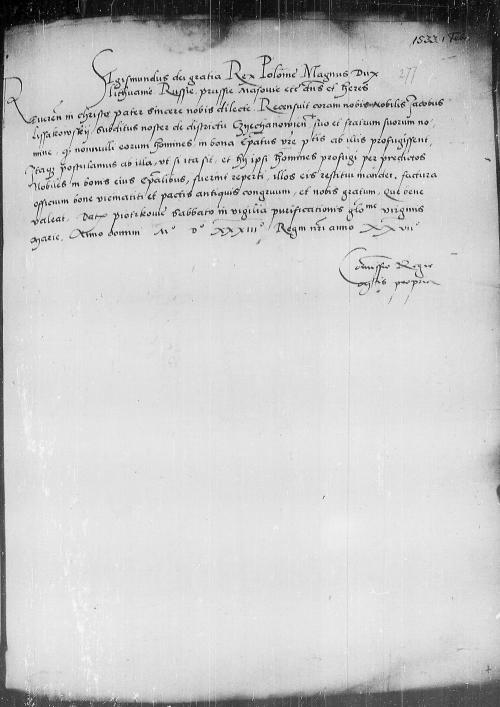 1533 1 Feb.
277
Sigismundus dei gratia Rex Polonie Magnus Dux
Lithuanie Russie, prussie Masovie etc dns et heres
Reveren in christo pater sincere nobis dilecte. Recensuit coram nobis nobilis Jacobus
Lyssakowskÿ subditus noster de districtu Czyechanowien suo et fratrum suorum no
mine, qd nonnulli eorum homines, in bona Epatus vre ptis ab illis profugissent,
Itaqz postulamus ab illa, ut si ita sit, et hÿ ipsi homines profugi per predictos
Nobiles in bonis eius Epalibus, fuerint reperti, illos eis restitui mandet, factura
officium bone vicinitati et pactis antiquis congruum, et nobis gratum, Que bene
valeat. Dat piotrkowie sabbato in vigilia purificationis glo me virginis
Marie, Anno domini Mo Do XXXIIIo Regni nri anno XXVIIo
Commissio Regie
Mtis propria